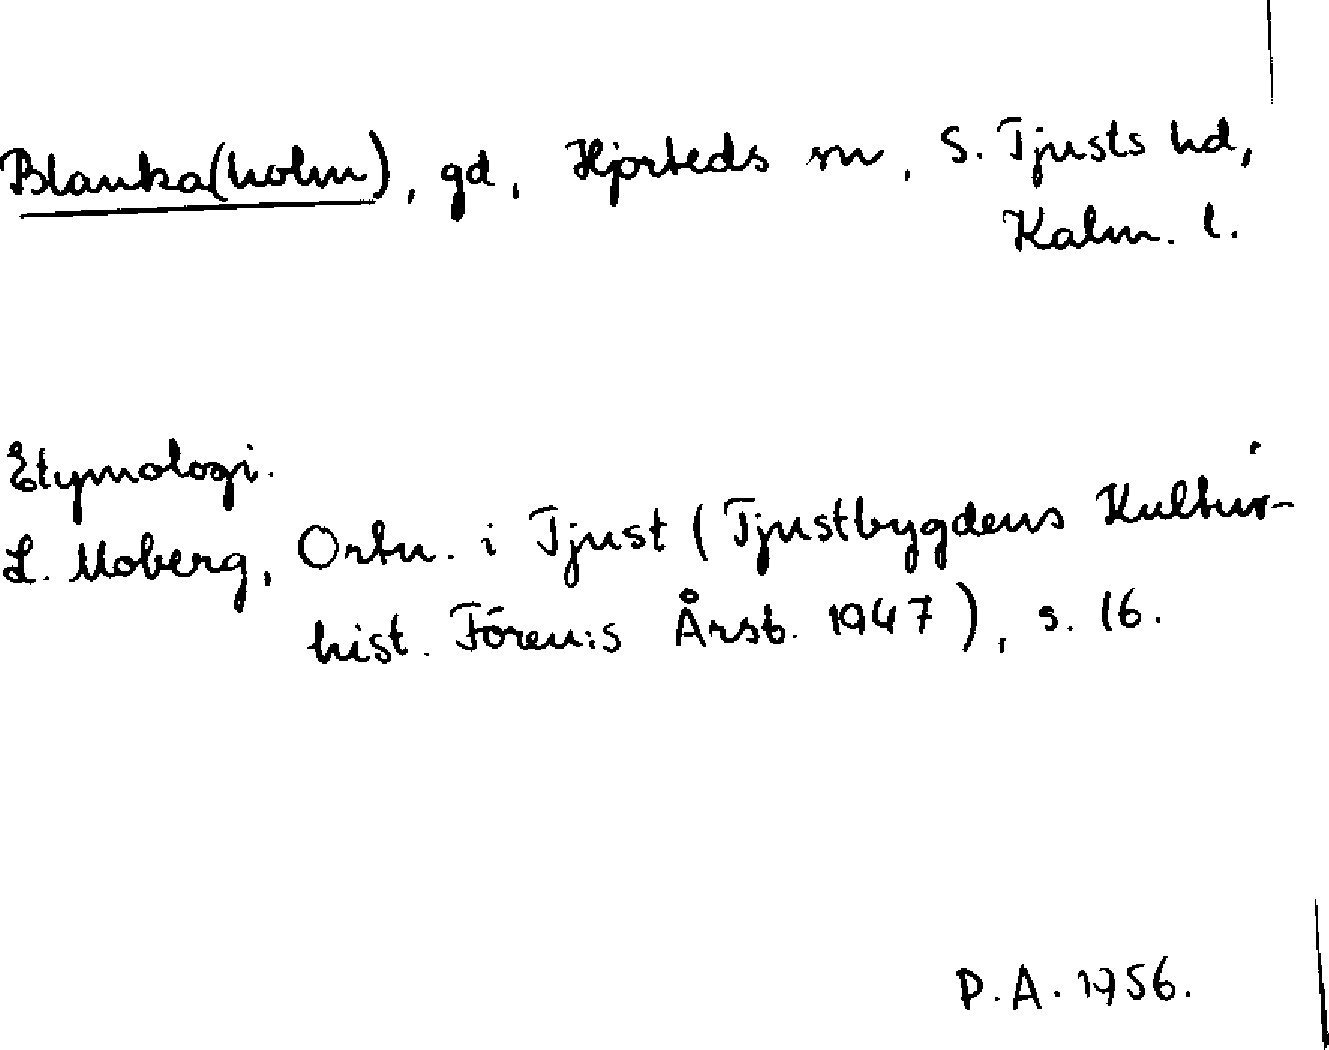 Blanka(holm), gd, Hjorteds sn, S. Tjusts hd,
Kalm. l.
Etymologi.
L. Moberg, Ortn. i Tjust (Tjustbygdens Kultur-
hist. Fören:s Årsb. 1947), s. 16.
P.A. 1956.